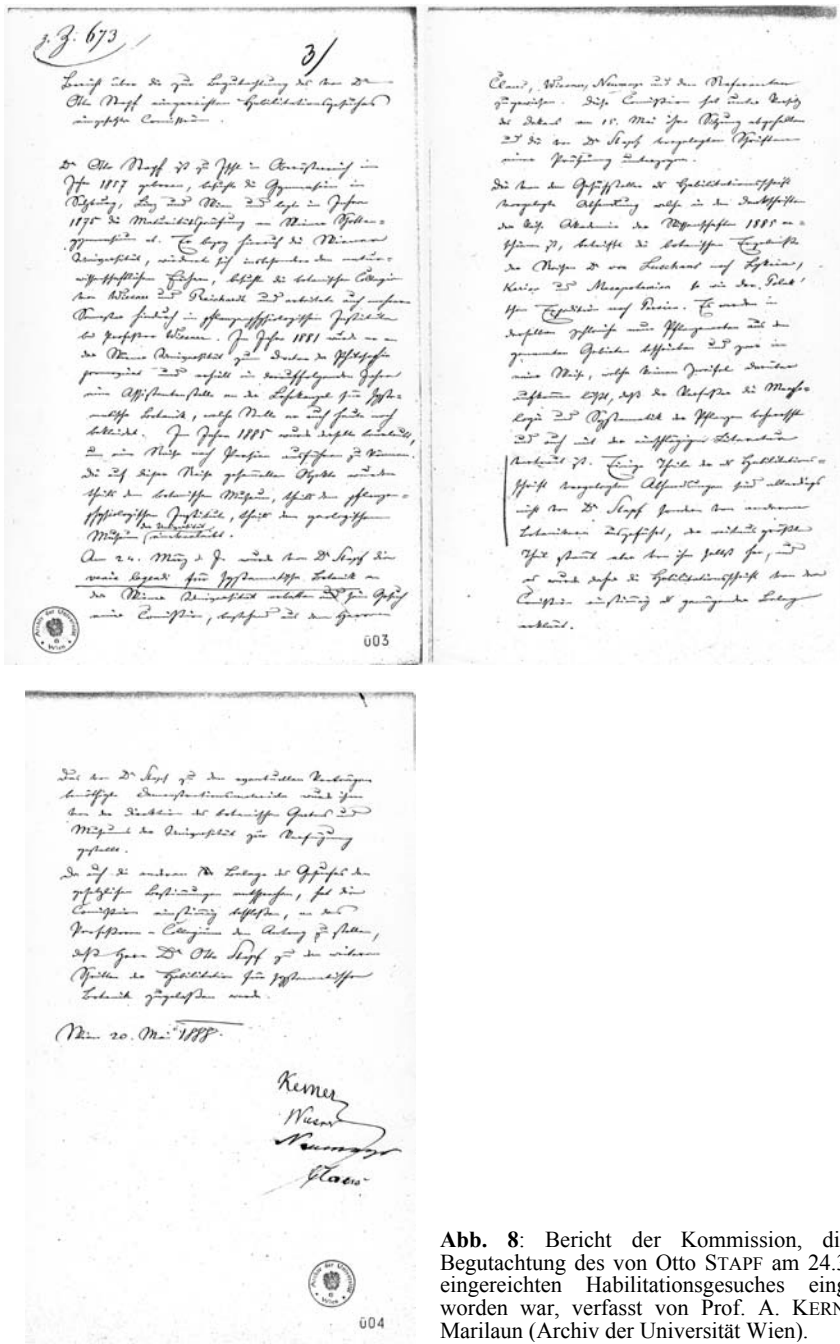 z. Z. 673
3/
Bericht über die zur Begutachtung des von Dr
Otto Stapf eingereichten Habilitationsgesuches
eingesetzte Comission.
Dr Otto Stapf ist zu Ischl in Oberösterreich im
Jahre 1857 geboren, besuchte die Gymnasien in
Salzburg, Linz und Wien und legte im Jahre
1875 die Maturitätsprüfung am Wiener Schotten-
gymnasium ab. Er bezog hierauf die Wiener
Universität, widmete sich insbesondere den natur-
wissenschaftlichen Fächern, besuchte die botanischen Collegien
von Wiesner und Reichardt und arbeitete auch mehrere
Semester hindurch im pflanzenphysiologischen Institute
bei Professor Wiesner. Im Jahre 1881 wurde er an
der Wiener Universität zum Doctor der Philosophie
promoviert und erhielt im darauffolgenden Jahre
eine Assistentenstelle an der Lehrkanzel für syste-
matische Botanik, welche Stelle er auch heute noch
bekleidet. Im Jahre 1885 wurde derselbe beurlaubt,
um eine Reise nach Persien ausführen zu können.
Die auf dieser Reise gesammelten Objekte wurden
theils dem botanischen Museum, theils dem pflanzen-
physiologischen Institute, theils dem geologischen
der Universität
Museum einverleibt.
Am 24. März d. J. wurde von Dr Stapf die
venia legendi für systematische Botanik an
der Wiener Universität erbeten und sein Gesuch
einer Comission, bestehend aus den Herren
Archiv der Universität Wien
003
Claus, Wiesner, Neumayr und dem Referenten
zugewiesen. Diese Comission hat unter Vorsitz
des Dekans am 15. Mai ihre Sitzung abgehalten
und die von Dr Stapf vorgelegten Schriften
einer Prüfung unterzogen.
Die von dem Gesuchsteller als Habilitationsschrift
vorgelegte Abhandlung welche in den Denkschriften
der kais. Akademie der Wissenschaften 1885 er-
schienen ist, betrifft die botanischen Ergebnisse
der Reisen Dr von Luschans nach Lykien,
Karien und Mesopotamien so wie der Polak'
schen Expedition nach Persien. Es werden in
derselben zahlreiche neue Pflanzenarten aus den
genannten Gebieten beschrieben und zwar in
einer Weise, welche keinen Zweifel darüber
aufkommen läßt, daß der Verfasser die Morpho-
logie und Systematik der Pflanzen beherrscht
und auch mit der einschlägigen Literatur
vertraut ist. Einige Theile der als Habilitations-
schrift vorgelegten Abhandlungen sind allerdings
nicht von Dr Stapf sondern von anderen
Botanikern ausgeführt, der weitaus größte
Theil stammt aber von ihm selbst her, und
es wurde daher die Habilitationsschrift von der
Comission einstimmig als genügender Beleg
erklärt.
Das von Dr Stapf zu den eventuellen Vorträgen
benöthigte Demonstrationsmateriale wurde ihm
von der Direktion des botanischen Gartens und
Museums der Universität zur Verfügung
gestellt.
Da auch die anderen Belege des Gesuches den
gesetzlichen Bestimmungen entsprechen, hat die
Comission einstimmig beschlossen, an das
Professoren-Collegium den Antrag zu stellen,
daß Herr Dr Otto Stapf zu den weiteren
Schritten der Habilitation für systematische
Botanik zugelassen werde.
Wien 20. Mai 1888.
Kerner
Wiesner
Neumayr
Claus
Archiv der Universität Wien
004
Abb. 8: Bericht der Kommission, di
Begutachtung des von Otto STAPF am 24.3
eingereichten Habilitationsgesuches eing
worden war, verfasst von Prof. A. KERN
Marilaun (Archiv der Universität Wien).